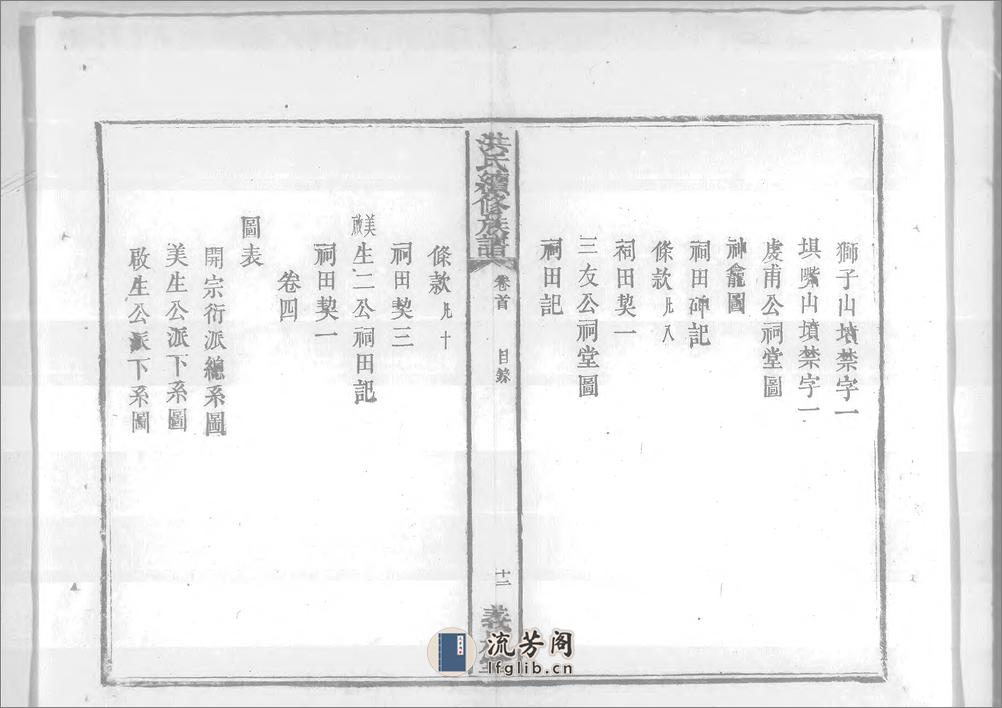 獅子山墳禁字一
塡嘴山墳禁字一
虔甫公祠堂圖
神龕圖
祠田碑記
條款凡八
祠田契一
三友公祠堂圖
祠田記
洪氏續修族譜
卷首
目錄
十二
義
條款凡十
祠田契三
美啟生二公祠田記
祠田契一
卷四
圖表
開宗衍派總系圖
美生公派下系圖
啟生公派下系圖
流芳阁
lfglib.cn